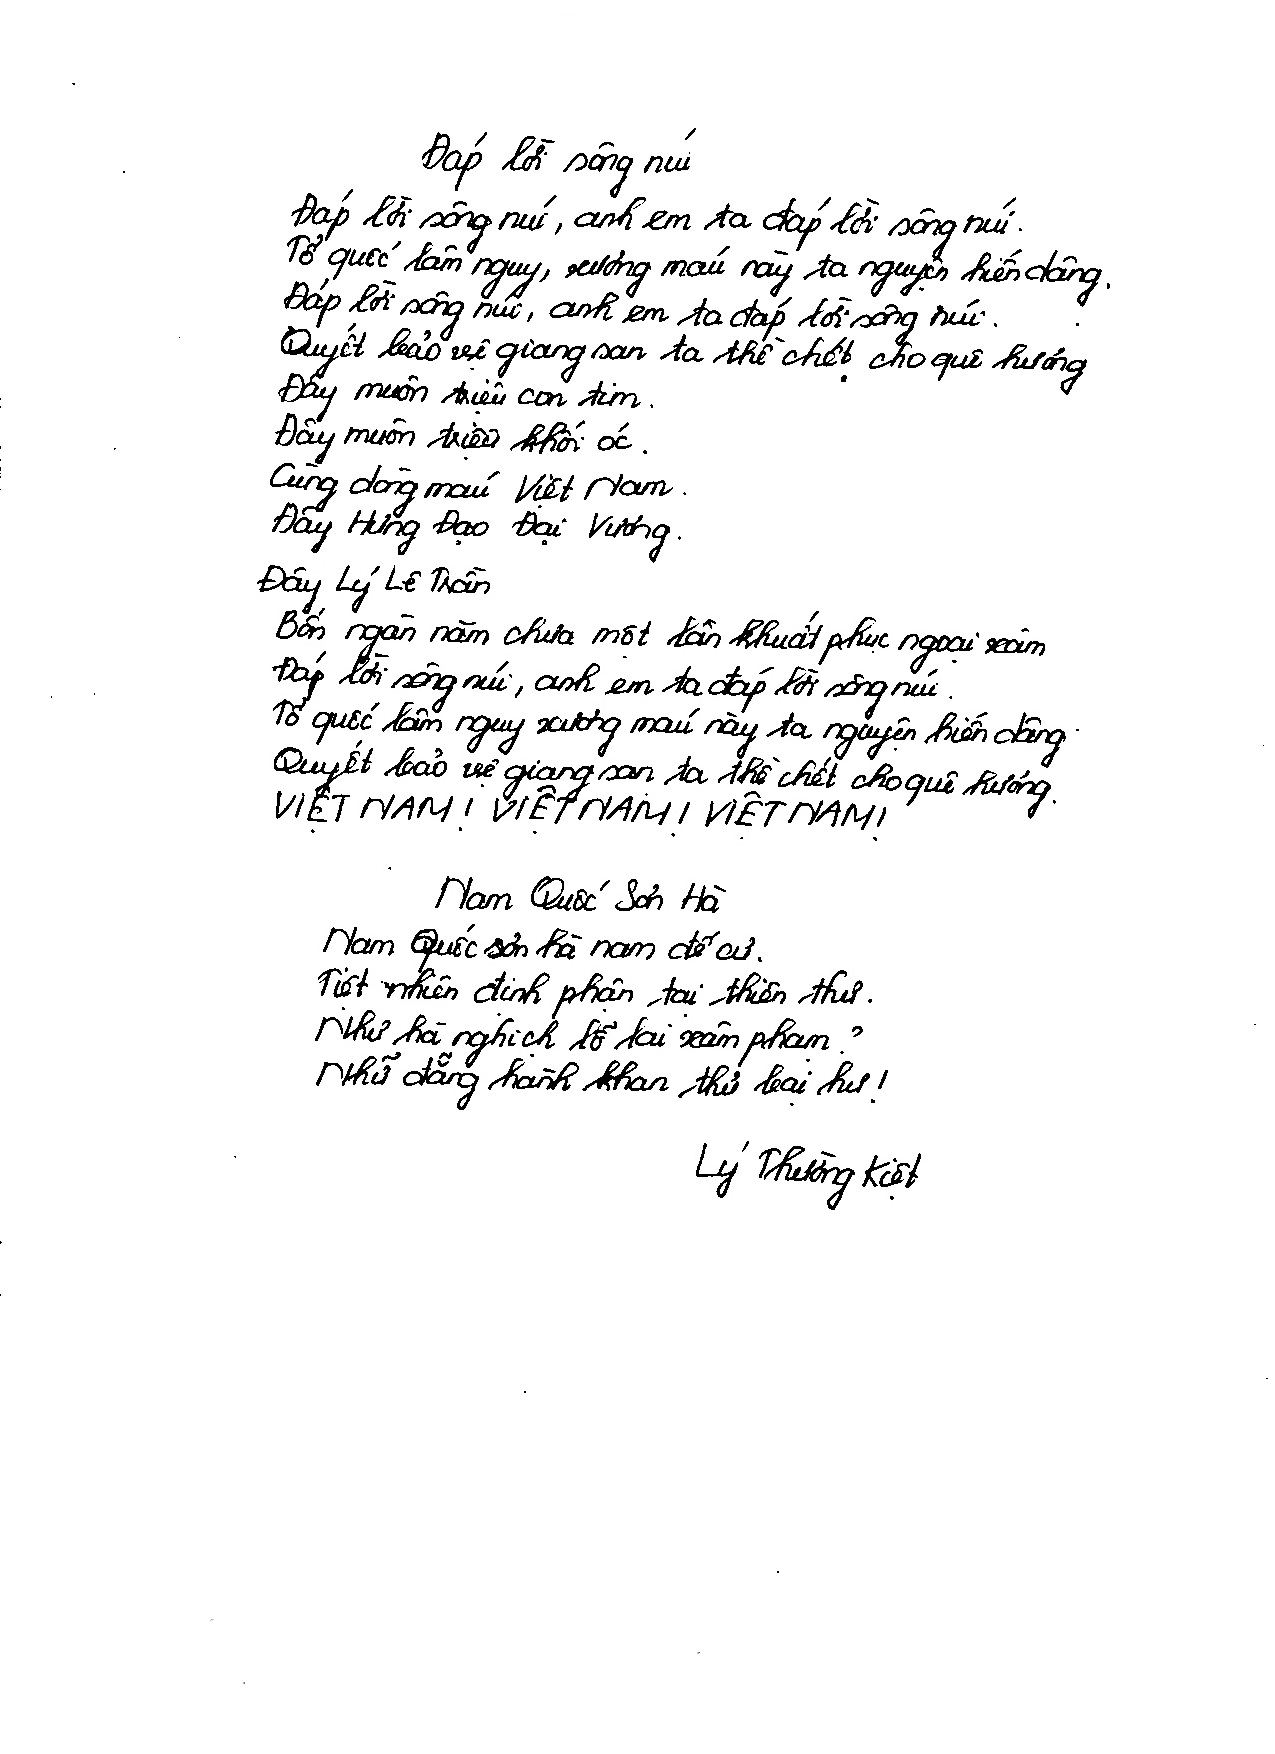 Đáp lời sông núi
Đáp lời sông núi, anh em ta đáp lời sông núi.
Tổ quốc lâm nguy, xương máu này ta nguyện hiến dâng.
Đáp lời sông núi, anh em ta đáp lời sông núi.
Quyết bảo vệ giang san ta thề chết cho quê hương
Đây muôn triệu con tim.
Đây muôn triệu khối óc.
Cùng dòng máu Việt Nam.
Đây Hưng Đạo Đại Vương.
Đây Lý Lê Trần
Bốn ngàn năm chưa một lần khuất phục ngoại xâm
Đáp lời sông núi, anh em ta đáp lời sông núi.
Tổ quốc lâm nguy xương máu này ta nguyện hiến dâng
Quyết bảo vệ giang san ta thề chết cho quê hương.
VIỆT NAM! VIỆT NAM! VIỆT NAM!
Nam Quốc Sơn Hà
Nam Quốc sơn hà nam đế cư.
Tiệt nhiên định phận tại thiên thư.
Như hà nghịch lỗ lai xâm phạm?
Nhữ đẳng hành khan thủ bại hư!
Lý Thường Kiệt